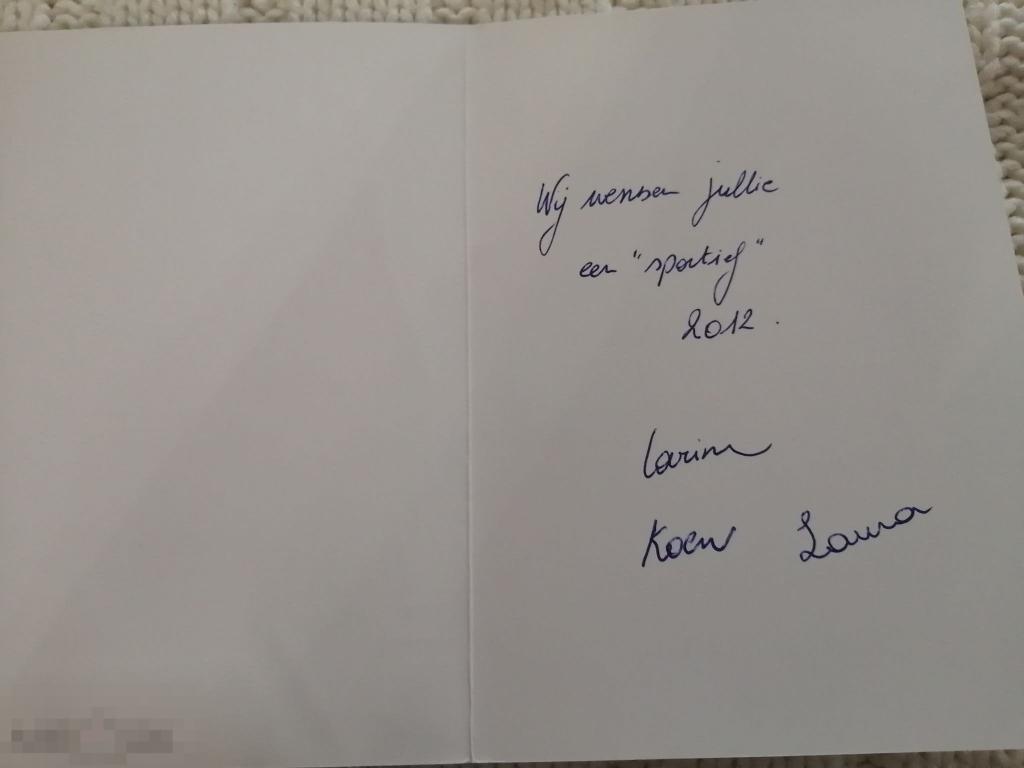 Wij wensen jullie
een "sportief"
2012.
Carine
Koen Laura